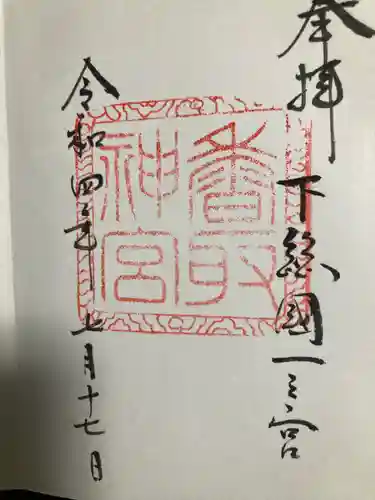 奉拝
下総國一之宮
香取
神宮
令和四年七月十七日